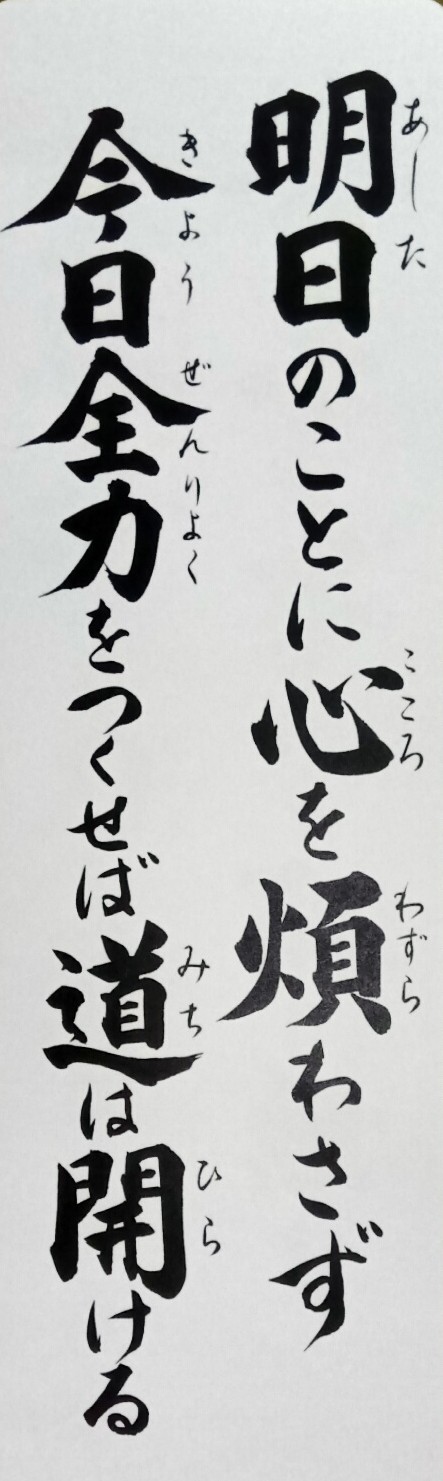 明日のことに心を煩わさず
あした
こころ
わずら
今日全力をつくせば道は開ける
きよう
ぜんりよく
みち
ひら